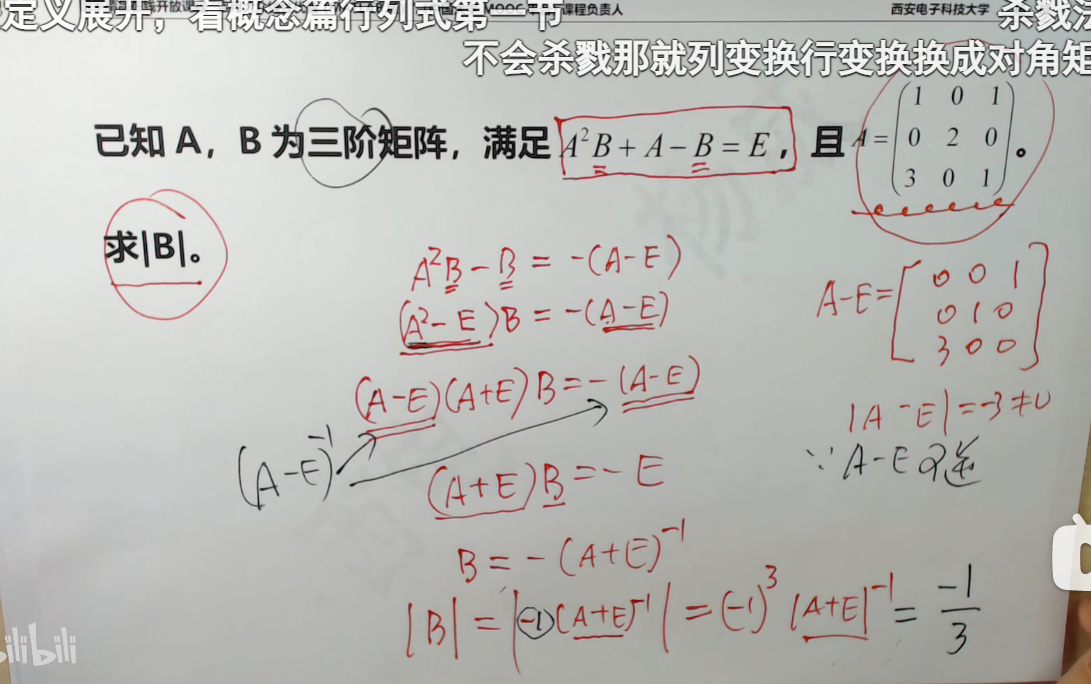 定义展开，看概念篇行列式第一节
课程负责人
西安电子科技大学
杀戮法
不会杀戮那就列变换行变换换成对角矩
已知 A，B 为三阶矩阵，满足 A²B + A − B = E，且 A = (1 0 1
0 2 0
3 0 1)。
求|B|。
A²B − B = −(A−E)
(A²−E)B = −(A−E)
(A−E)(A+E)B = −(A−E)
(A−E)⁻¹
(A+E)B = −E
B = −(A+E)⁻¹
|B| = |(−1)(A+E)⁻¹| = (−1)³ |A+E|⁻¹ = −1/3
A−E = [0 0 1
0 1 0
3 0 0]
|A−E| = −3 ≠ 0
∵ A−E 可逆
bilibili